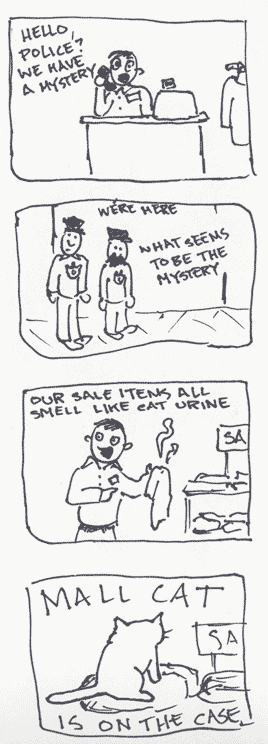 HELLO,
POLICE?
WE HAVE
A MYSTERY
WE'RE HERE
WHAT SEEMS
TO BE THE
MYSTERY
OUR SALE ITEMS ALL
SMELL LIKE CAT URINE
SA
MALL CAT
SA
IS ON THE CASE